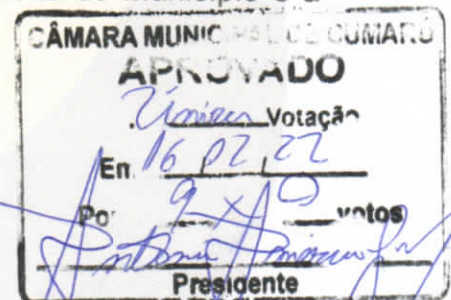 CÂMARA MUNICIPAL DE CUMARU
APROVADO
Única Votação
Em 16/02/22
Por 9 x 0 votos
Presidente